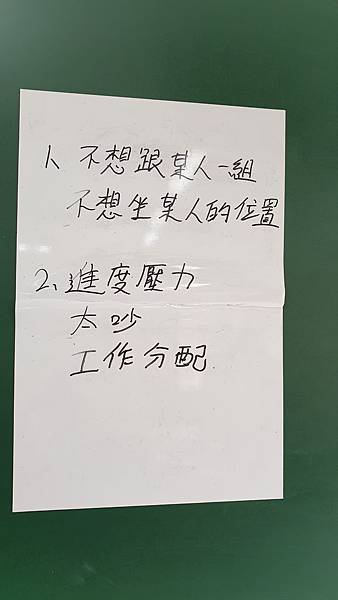 1、不想跟某人一組
不想坐某人的位置
2、進度壓力
太吵
工作分配